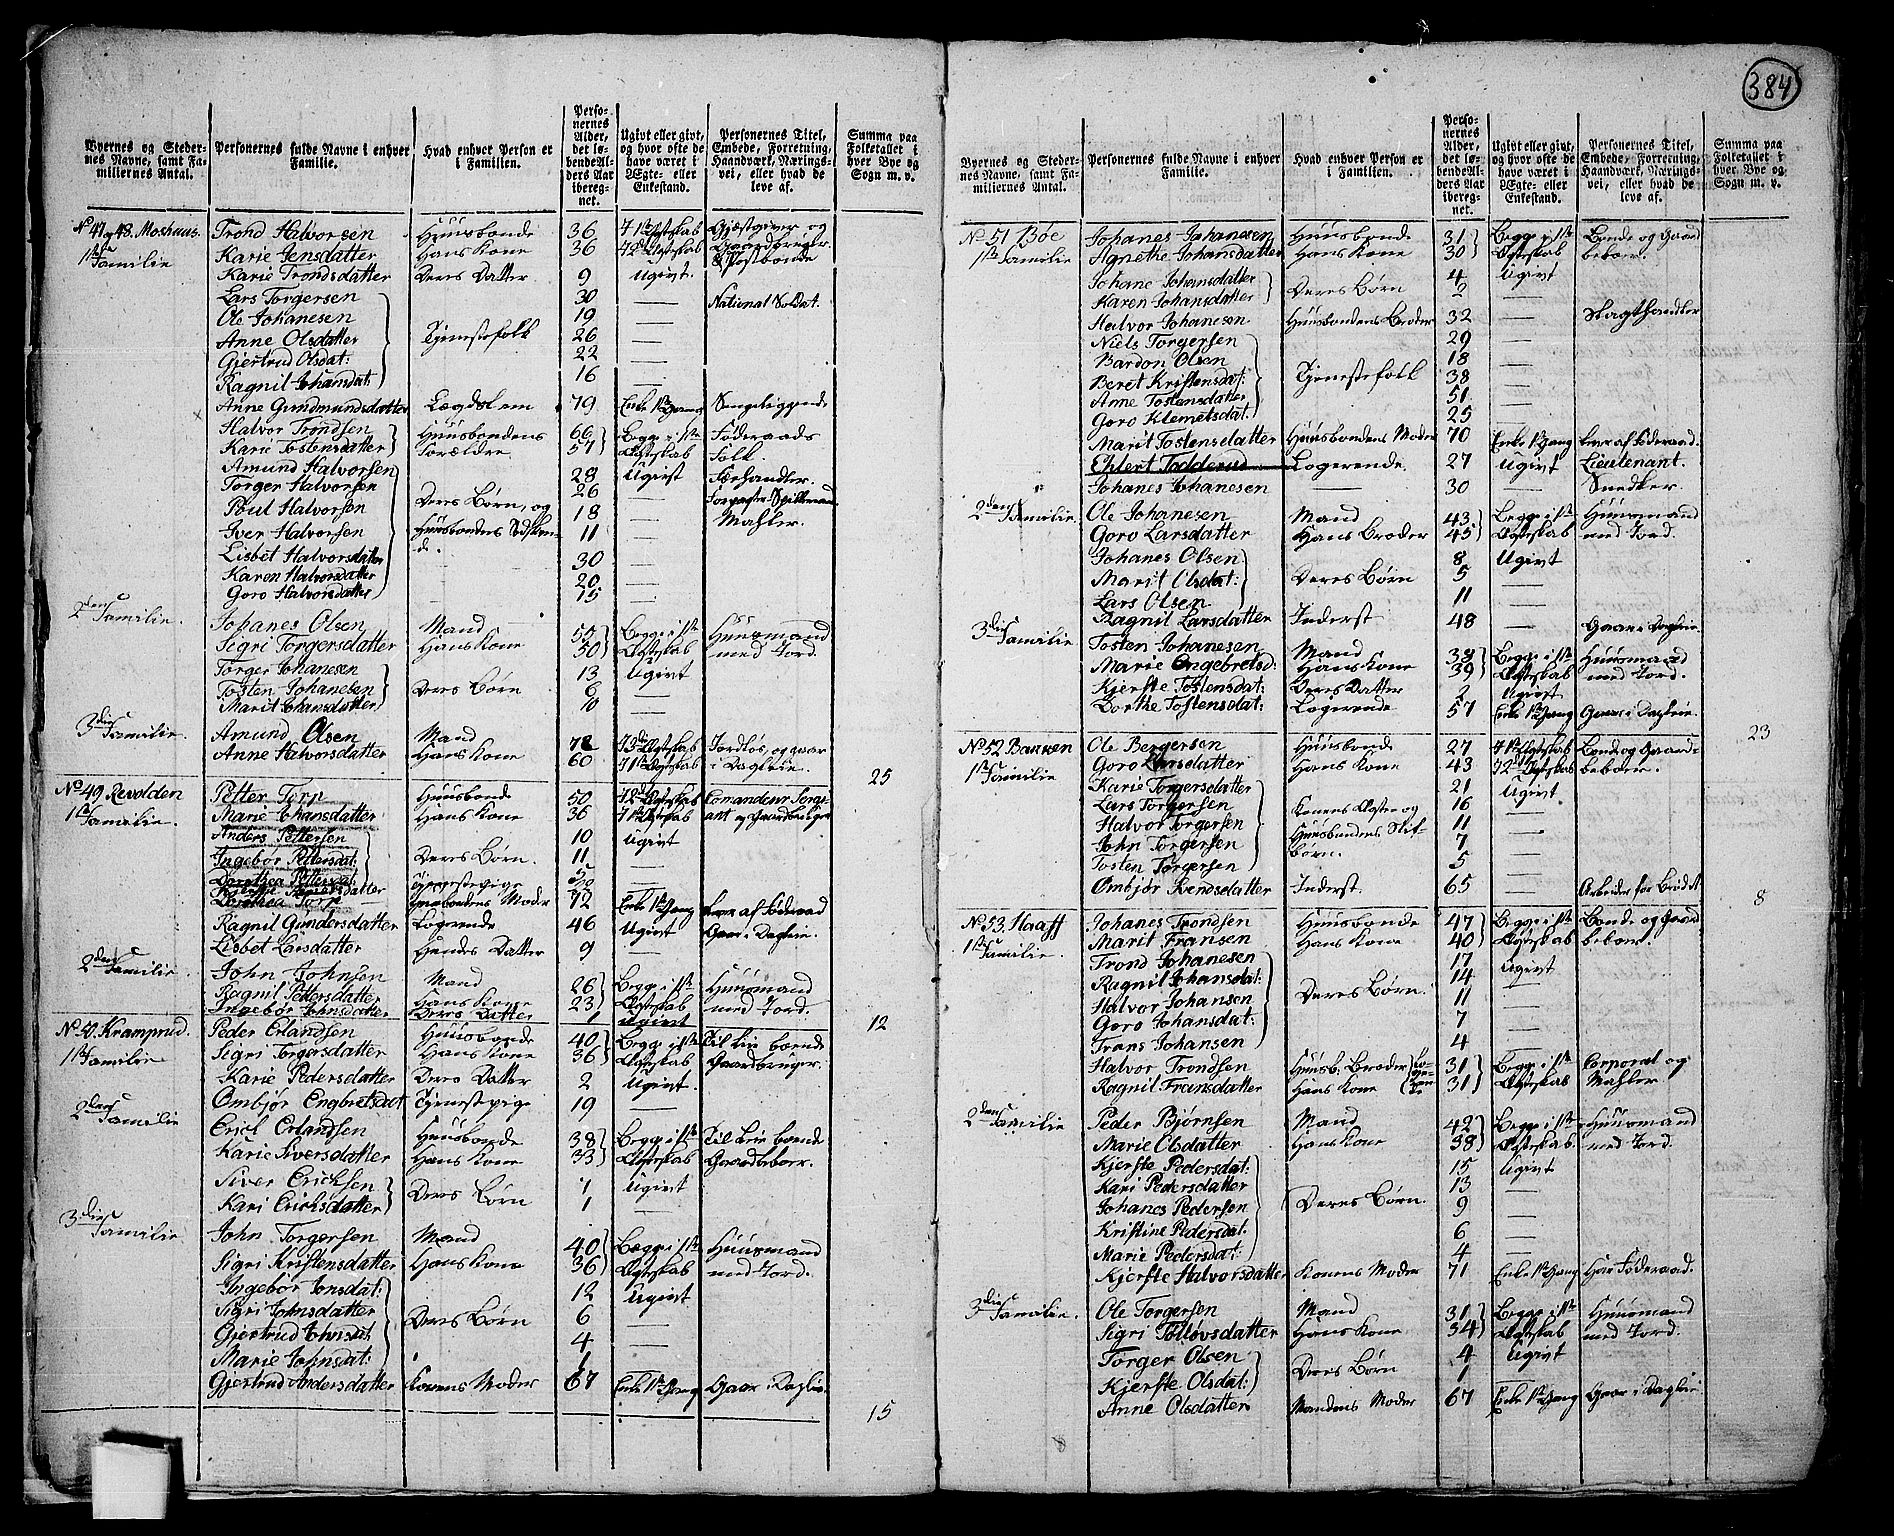 384
Byernes og Steder-
nes Navne, samt Fa-
miliernes Antal.
Personernes fulde Navne i enhver
Familie.
Hvad enhver Person er
i Familien.
Perso-
nernes
Alder,
det lø-
bende Al-
ders Aar
ibereg-
net.
Ugivt eller givt,
og hvor ofte de
have været i
Ægte- eller
Enkestand.
Personernes Titel,
Embede, Forretning,
Haandværk, Nærings-
vei, eller hvad de
leve af.
Summa paa
Folketallet i
hver Bye og
Sogn m. v.
No 47 og 48. Moshuus. Trond Halvorsen Huusbonde 36 1ste Ægteskab Gjæstgiver og
1ste Familie Karie Jensdatter Hans Kone 36 2det Ægteskab Gaardbruger
Karie Trondsdatter Deres Datter 9 Ugivt. & Postbonde
Lars Torgersen 30 — National Soldat.
Ole Johanesen 19 —
Anne Olsdatter Tjenestefolk 26 —
Gjertrud Olsdat: 22 —
Ragnil Johansdat: 16 —
Anne Gundmundsdatter Lægdslem 79 Enke 1ste Gang Sengeliggende
Halvor Trondsen Huusbondens 66 Begge i 1ste Föderaads
Karie Tostensdatter Forældre 57 Ægteskab Folk.
Amund Halvorsen 28 Ugivt Færhandler.
Torger Halvorsen 26 —
Poul Halvorsen Deres Börn, og 18 — Mahler.
Iver Halvorsen Huusbondens Södsken- 11 —
Lisbet Halvorsdatter de. 30 —
Karen Halvorsdatter 20 —
Goro Halvorsdatter 15 —
2den Familie. Johanes Olsen Mand 55 Begge i 1ste Huusmand
Sigri Torgersdatter Hans Kone 50 Ægteskab med Jord.
Torger Johanesen 13 Ugivt
Tosten Johanesen Deres Börn 6
Marit Johansdatter
3die Familie. Amund Olsen Mand 72 3die Ægteskab Jordlös, gaar
Anne Halvorsdatter Hans Kone 60 1ste Ægteskab i Dagleie. 25
No 49 Revolden Petter Torp Huusbonde 50 2det Ægteskab Comandeur Serge-
1ste Familie. Marie Johansdatter Hans Kone 36 1ste Ægteskab ant og Gaardbruger
Anders Pettersen 10 Ugivt
Ingebör Pedersdat: Deres Börn. 11 —
Dorothea Pettersdat: 5 —
Tjenestepige
Dorothea Torp Huusbondens Moder 72 Enke 1ste Gang Lever af Föderaad
Ragnil Gundersdatter Logerende 46 Ugivt Gaar i Dagleie.
Lisbet Larsdatter Hendes Datter 9 —
2den Familie. John Johnsen Mand 26 Begge i 1ste Huusmand
Ragnil Pettersdatter Hans Kone 23 Ægteskab med Jord.
Ingebör Johnsdatter Deres Datter 1 Ugivt 12
No 50. Kramprud. Peder Erlandsen Huusbonde 40 Begge i 1ste Til Leie boende
1ste Familie Sigri Torgersdatter Hans Kone 36 Ægteskab Gaardbruger.
Karie Pedersdatter Deres Datter 2 Ugivt.
Ombjör Engbretsdat Tjenestpige 19 —
2den Familie Erich Erlandsen Huusbonde 38 Begge i 1ste Til Leie boende
Karie Siversdatter Hans Kone 33 Ægteskab Gaardbeboer.
Siver Ericksen Deres Börn Ugivt
Kari Ericksdatter 1 —
3die Familie John Torgersen Mand 40 Begge i 1ste Huusmand
Sigri Kristensdatter Hans Kone 36 Ægteskab med Jord.
Ingebör Jonsdat: 12 Ugivt
Sigri Johnsdatter Deres Börn 6 —
Gjertrud Johnsdat 4 —
Marie Johnsdat: 1 —
Gjertrud Andersdatter Konens Moder 67 Enke 1ste Gang Gaar i Dagleie.
15
Byernes og Steder-
nes Navne, samt Fa-
miliernes Antal.
Personernes fulde Navne i enhver
Familie.
Hvad enhver Person er
i Familien.
Perso-
nernes
Alder,
det lø-
bende Al-
ders Aar
ibereg-
net.
Ugivt eller givt,
og hvor ofte de
have været i
Ægte- eller
Enkestand.
Personernes Titel,
Embede, Forretning,
Haandværk, Nærings-
vei, eller hvad de
leve af.
Summa paa
Folketallet i
hver Bye og
Sogn m. v.
No 51 Böe Johanes Johanesen Huusbonde 31 Begge i 1ste Bonde og Gaard
1ste Familie Agnethe Johansdatter Hans Kone 30 Ægteskab beboer.
Johane Johansdatter Deres Börn 4 Ugivt
Karen Johansdatter 2 —
Halvor Johanesen Huusbondens Broder 32 — Slagthandler
Niels Torgersen 29 —
Bardon Olsen 18 —
Beret Kristensdat: Tjenestefolk 38 —
Anne Tostensdatter 51 —
Goro Klemetsdat. 25 —
Marit Tostensdatter Huusbondens Moder 70 Enke 1ste Gang Lever af Föderaad.
Ehlert Todderud Logerende 27 Ugivt Lieutenant.
Johanes Johanesen — 30 — Snedker.
2den Familie. Ole Johanesen Mand 43 Begge i 1ste Huusmand
Goro Larsdatter Hans Broder 45 Ægteskab med Jord.
Johanes Olsen 8 Ugivt
Marit Olsdat: Deres Börn 5 —
Lars Olsen 11 —
Ragnil Larsdatter Inderst 48 — Gaar i Dagleie.
3die Familie Tosten Johanesen Mand 38 Begge i 1ste Huusmand
Marie Engebretsd. Hans Kone 39 Ægteskab med Jord.
Kjerste Tostensdat: Deres Datter 2 Ugivt
Dorthe Tostensdat: Logerende 57 Enke 1ste Gang Gaar i Dagleie.
23
No 52 Bannen Ole Bergersen Huusbonde 27 1ste Ægteskab Bonde og Gaard-
1ste Familie Goro Larsdatter Hans Kone 43 2det Ægteskab beboer.
Karie Torgersdatter 21 Ugivt
Lars Torgersen Konens Ægte og 16 —
Halvor Torgersen Huusbondens Stif- 11 —
John Torgersen börn. 7 —
Tosten Torgersen 5 —
Ombjör Svendsdatter Inderst. 65 — Arbeider for Brödet
8
No 53. Haaff Johanes Trondsen Huusbonde 47 Begge i 1ste Bonde og Gaard
1ste Familie. Marit Fransen Hans Kone 40 Ægteskab beboer.
Trond Johanesen 17 Ugivt
Ragnil Johansdat: 14 —
Halvor Johansen Deres Börn. 11 —
Goro Johansdat: 7 —
Frans Johansen 4 —
Halvor Trondsen Huusb. Broder 31 Begge i 1ste Corporal og
Ragnil Fransdatter Hans Kone 31 Ægteskab Mahler.
2den Familie Peder Björnsen Mand 42 Begge i 1ste Huusmand
Marie Olsdatter Hans Kone 38 Ægteskab med Jord.
Kjerste Pedersdat: 15 Ugivt
Kari Pedersdatter 13 —
Johanes Pedersen Deres Börn. 9 —
Kristine Pedersdat. 6 —
Marie Pedersdat: 4 —
Kjerste Halvorsdatter Konens Moder 71 Enke 1ste Gang Har Föderaad.
3die Familie. Ole Torgersen Mand 31 Begge i 1ste Huusmand
Sigri Tollövsdatter Hans Kone 34 Ægteskab med Jord.
Torger Olsen Deres Börn 4 Ugivt
Kjerste Olsdat: 1 —
Anne Olsdatter Mandens Moder 67 Enke 1ste Gang Gaar i Dagleie